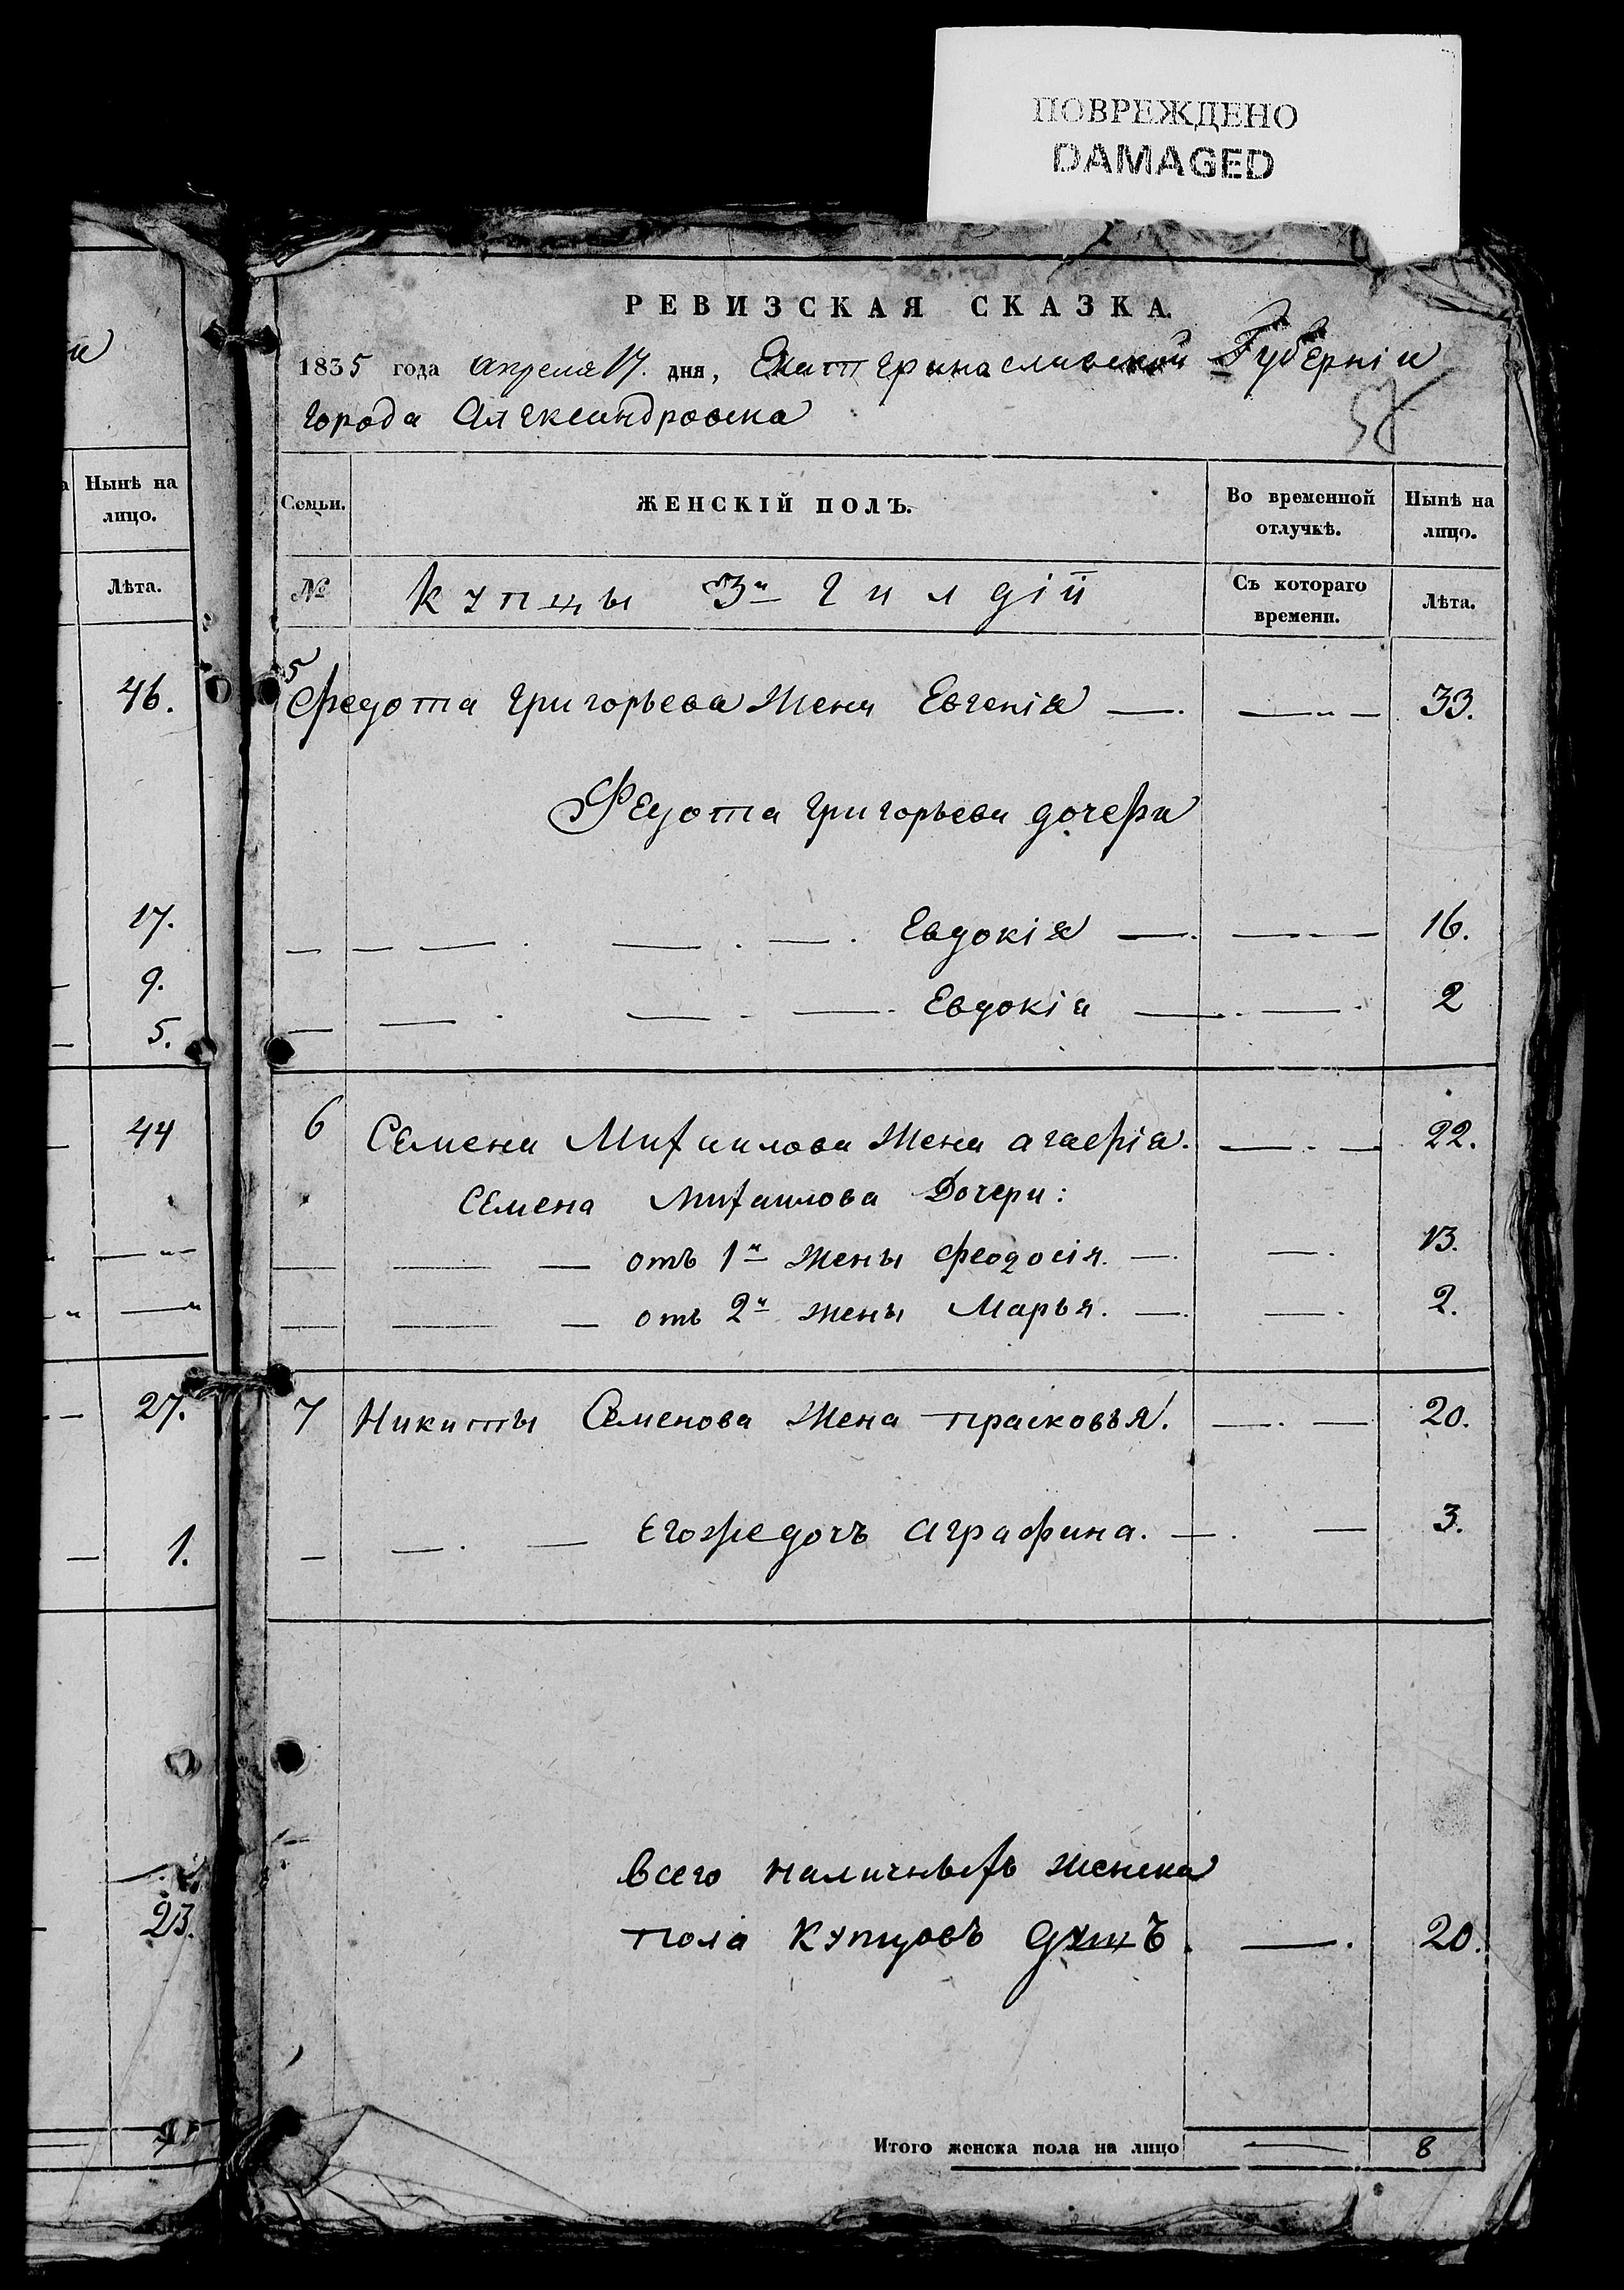 ПОВРЕЖДЕНО
DAMAGED
РЕВИЗСКАЯ СКАЗКА.
1835 года апреля 17. дня, Екатеринославской Губерніи
города Александровска
58
Нынѣ на лицо.
Лѣта.
46.
17.
9.
5.
44
27.
1.
23.
Семьи. ЖЕНСКІЙ ПОЛЪ. Во временной отлучкѣ. Нынѣ на лицо.
№ купцы 3й гилдіи Съ котораго времени. Лѣта.
5 Федота Григорьева жена Евгенія — — 33.
Федота Григорьева дочери
Евдокія — — 16.
Евдокія — — 2
6 Семена Михаилова жена Агафія. — — 22.
Семена Михаилова Дочери:
отъ 1й жены Феодосія. — — 13.
отъ 2й жены Марья. — — 2.
7 Никиты Семенова жена Прасковья. — — 20.
Его же дочь Аграфина. — — 3.
Всего наличныхъ женска
пола купцовъ душъ. — 20.
Итого женска пола на лицо — 8